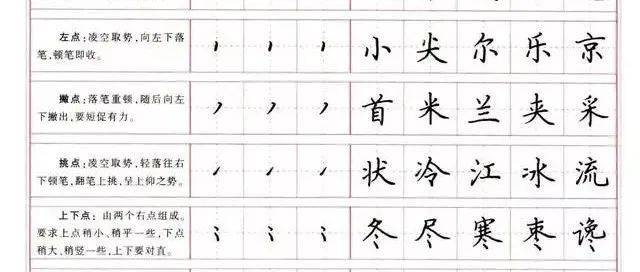 左点:凌空取势,向左下落
笔,顿笔即收。
小 尖 尔 乐 京
撇点:落笔重顿,随后向左
下撇出,要短促有力。
首 米 兰 夹 采
挑点:凌空取势,轻落往右
下顿笔,翻笔上挑,呈上仰之势。
状 冷 江 冰 流
上下点:由两个右点组成。
要求上点稍小、稍平一些,下点
稍大、稍竖一些,上下要对直。
冬 尽 寒 枣 谗